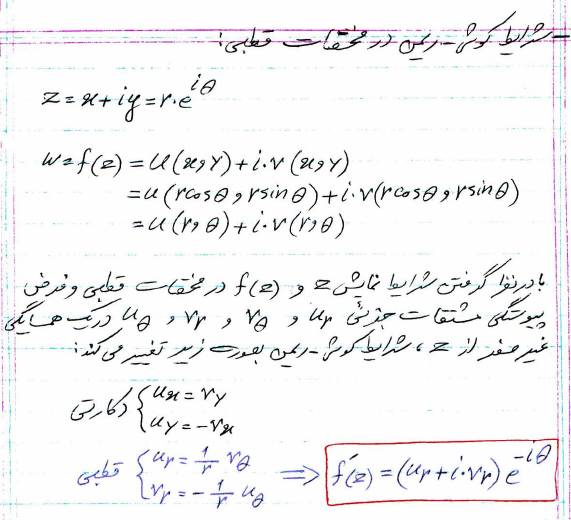 - شرایط کوشی-ریمن در مختصات قطبی:
z = x + iy = r.e^{iθ}
w = f(z) = u(x,y) + i.v(x,y)
= u(rcosθ , rsinθ) + i.v(rcosθ , rsinθ)
= u(r,θ) + i.v(r,θ)
با در نظر گرفتن شرایط نمایش z و f(z) در مختصات قطبی و فرض
پیوستگی مشتقات جزئی u_r و v_θ و v_r و u_θ در یک همسایگی
غیر صفر از z ، شرایط کوشی-ریمن بصورت زیر تغییر می‌کند:
دکارتی { u_x = v_y
u_y = -v_x
قطبی { u_r = 1/r v_θ
v_r = - 1/r u_θ
⇒ f'(z) = (u_r + i.v_r) e^{-iθ}